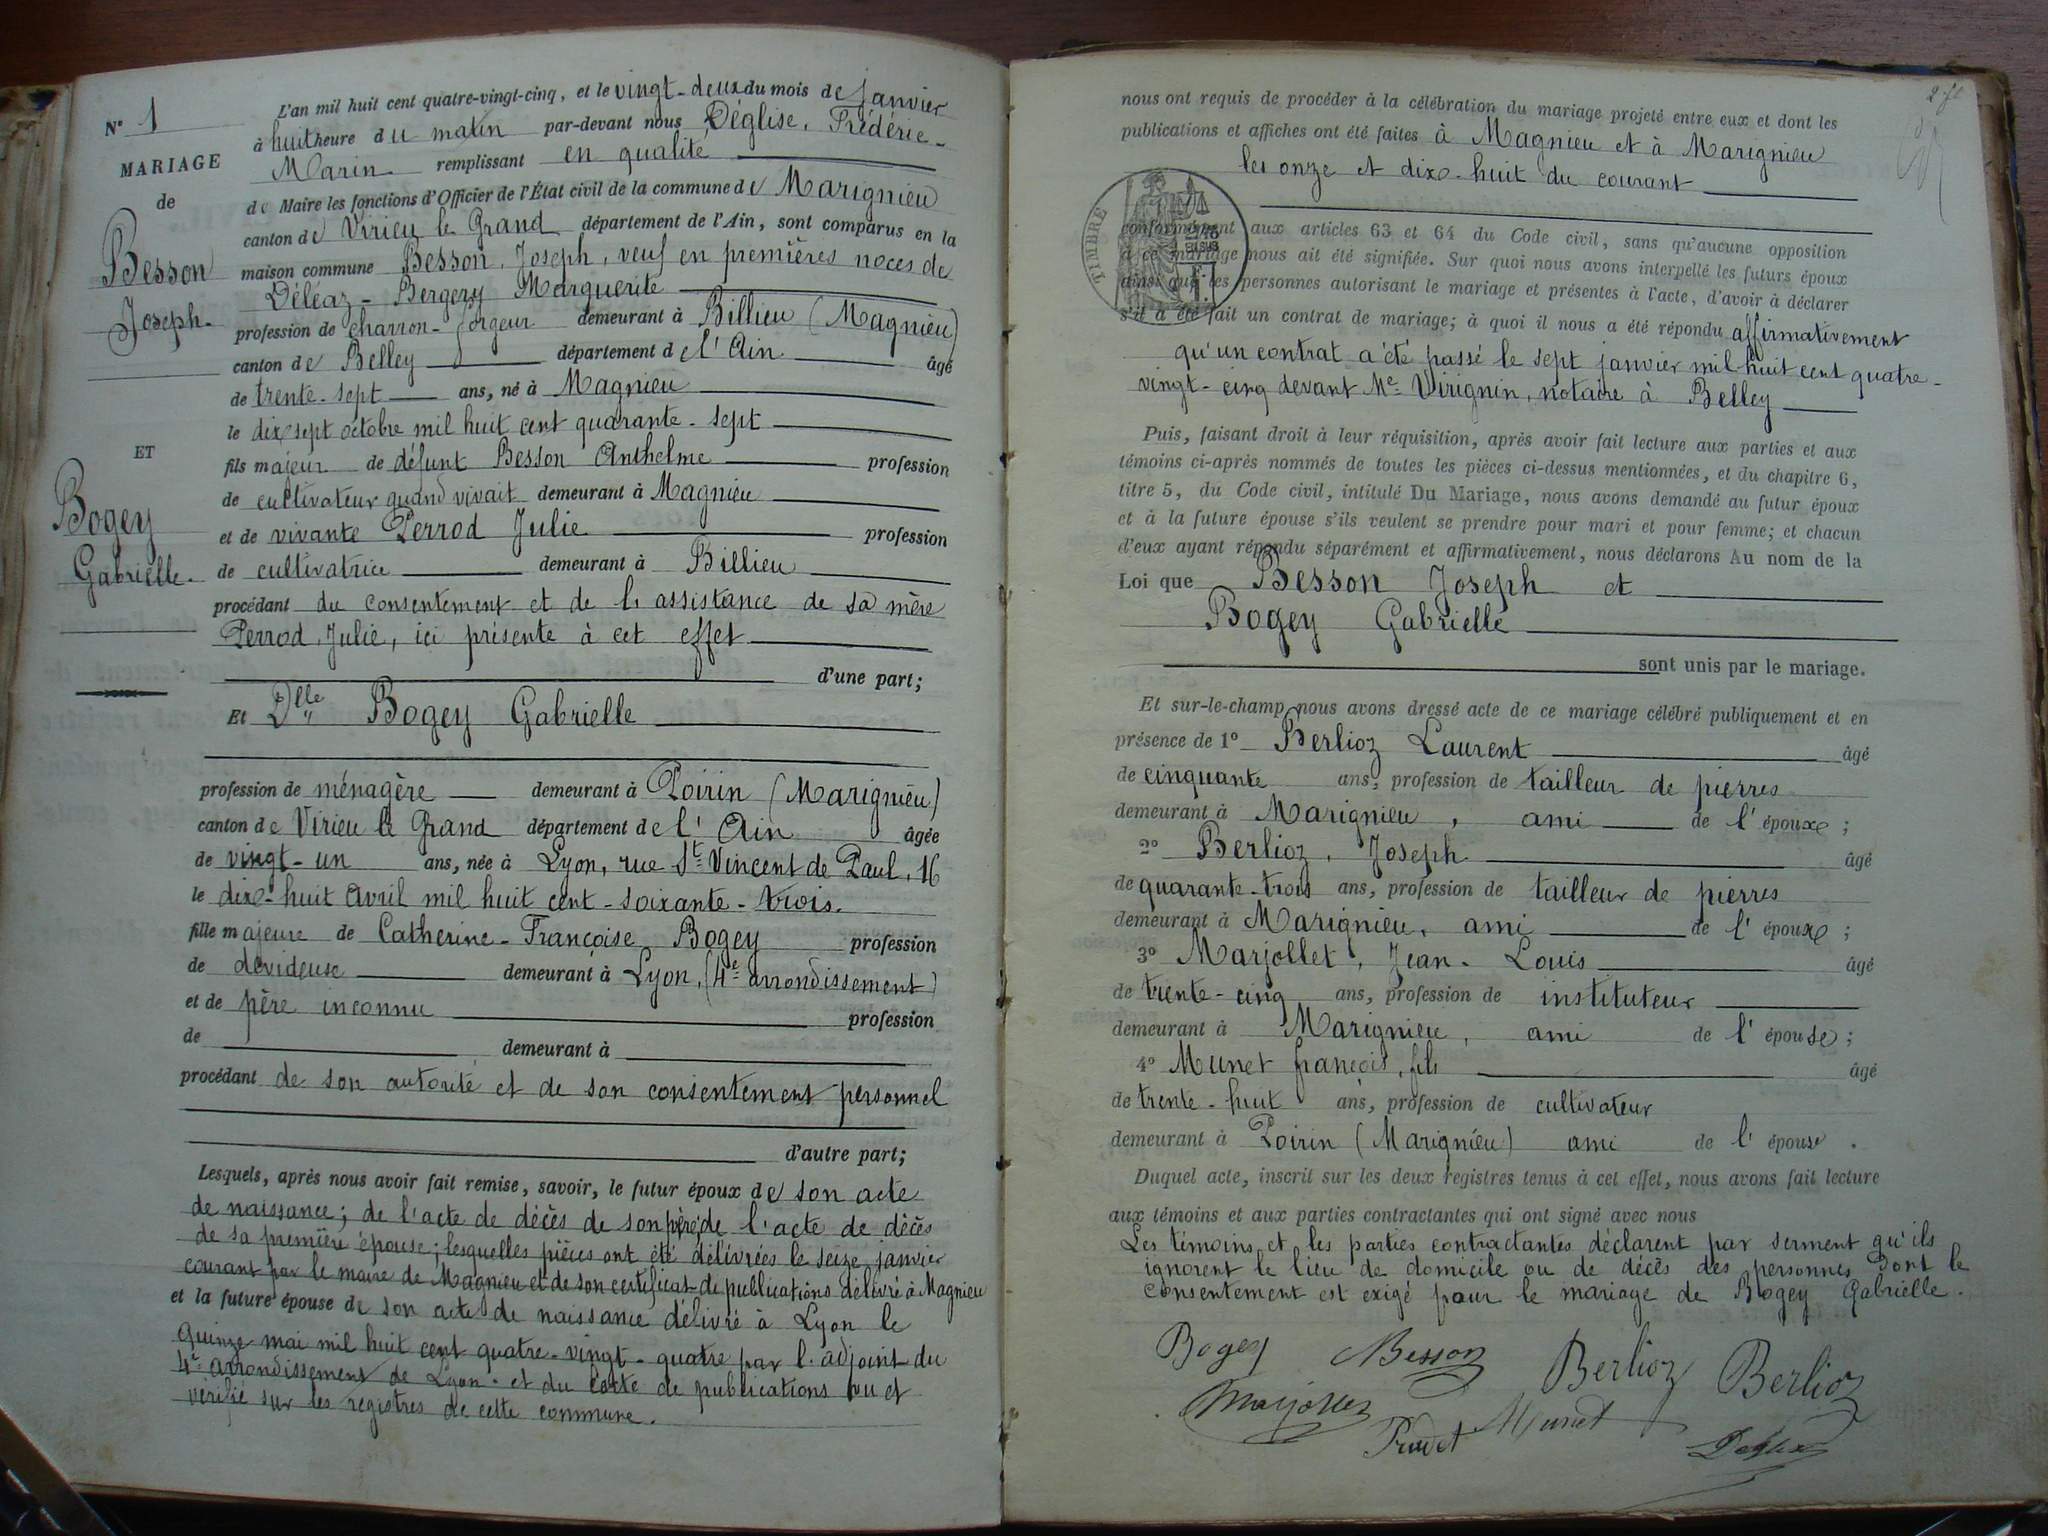 N° 1
MARIAGE
de
Besson
Joseph.
ET
Bogey
Gabrielle.
L'an mil huit cent quatre-vingt-cinq, et le vingt-deux du mois de janvier
à huit heure du matin par-devant nous Déglise, Frédéric-
Marin remplissant en qualité
de Maire les fonctions d'Officier de l'État civil de la commune de Marignieu
canton de Virieu le Grand département de l'Ain, sont comparus en la
maison commune Besson, Joseph, veuf en premières noces de
Déléaz-Bergery Marguerite
profession de charron-forgeur demeurant à Billieu (Magnieu)
canton de Belley département de l'Ain âgé
de trente-sept ans, né à Magnieu
le dix sept octobre mil huit cent quarante-sept
fils majeur de défunt Besson Anthelme profession
de cultivateur quand vivait demeurant à Magnieu
et de vivante Perrod Julie profession
de cultivatrice demeurant à Billieu
procédant du consentement et de l'assistance de sa mère
Perrod, Julie, ici présente à cet effet
d'une part;
Et Dlle Bogey Gabrielle
profession de ménagère demeurant à Poirin (Marignieu)
canton de Virieu le Grand département de l'Ain âgée
de vingt-un ans, née à Lyon, rue St Vincent de Paul, 16
le dix-huit Avril mil huit cent-soixante-trois.
fille majeure de Catherine-Françoise Bogey profession
de dévideuse demeurant à Lyon, (4e arrondissement)
et de père inconnu profession
de demeurant à
procédant de son autorité et de son consentement personnel
d'autre part;
Lesquels, après nous avoir fait remise, savoir, le futur époux de son acte
de naissance; de l'acte de décès de son père; de l'acte de décès
de sa première épouse; lesquelles pièces ont été délivrées le seize janvier
courant par le maire de Magnieu et de son certificat de publications délivré à Magnieu
et la future épouse de son acte de naissance délivré à Lyon le
quinze mai mil huit cent quatre-vingt-quatre par l'adjoint du
4e arrondissement de Lyon. et du texte de publications vu et
vérifié sur les registres de cette commune.
2 ft
nous ont requis de procéder à la célébration du mariage projeté entre eux et dont les
publications et affiches ont été faites à Magnieu et à Marignieu
les onze et dix-huit du courant
TIMBRE
conformément aux articles 63 et 64 du Code civil, sans qu'aucune opposition
à ce mariage nous ait été signifiée. Sur quoi nous avons interpellé les futurs époux
ainsi que les personnes autorisant le mariage et présentes à l'acte, d'avoir à déclarer
s'il a été fait un contrat de mariage; à quoi il nous a été répondu affirmativement
qu'un contrat a été passé le sept janvier mil huit cent quatre-
vingt-cinq devant Me Virignin, notaire à Belley
Puis, faisant droit à leur réquisition, après avoir fait lecture aux parties et aux
témoins ci-après nommés de toutes les pièces ci-dessus mentionnées, et du chapitre 6,
titre 5, du Code civil, intitulé Du Mariage, nous avons demandé au futur époux
et à la future épouse s'ils veulent se prendre pour mari et pour femme; et chacun
d'eux ayant répondu séparément et affirmativement, nous déclarons Au nom de la
Loi que Besson Joseph et
Bogey Gabrielle
sont unis par le mariage.
Et sur-le-champ nous avons dressé acte de ce mariage célébré publiquement et en
présence de 1° Berlioz Laurent âgé
de cinquante ans, profession de tailleur de pierres
demeurant à Marignieu, ami de l'époux;
2° Berlioz, Joseph âgé
de quarante-trois ans, profession de tailleur de pierres
demeurant à Marignieu, ami de l'époux;
3° Marjollet, Jean-Louis âgé
de trente-cinq ans, profession de instituteur
demeurant à Marignieu, ami de l'épouse;
4° Munet françois, fils âgé
de trente-huit ans, profession de cultivateur
demeurant à Poirin (Marignieu) ami de l'épouse.
Duquel acte, inscrit sur les deux registres tenus à cet effet, nous avons fait lecture
aux témoins et aux parties contractantes qui ont signé avec nous
Les témoins et les parties contractantes déclarent par serment qu'ils
ignorent le lieu de domicile ou de décès des personnes dont le
consentement est exigé pour le mariage de Bogey Gabrielle.
Bogey Besson Berlioz Berlioz
Marjollet Munet